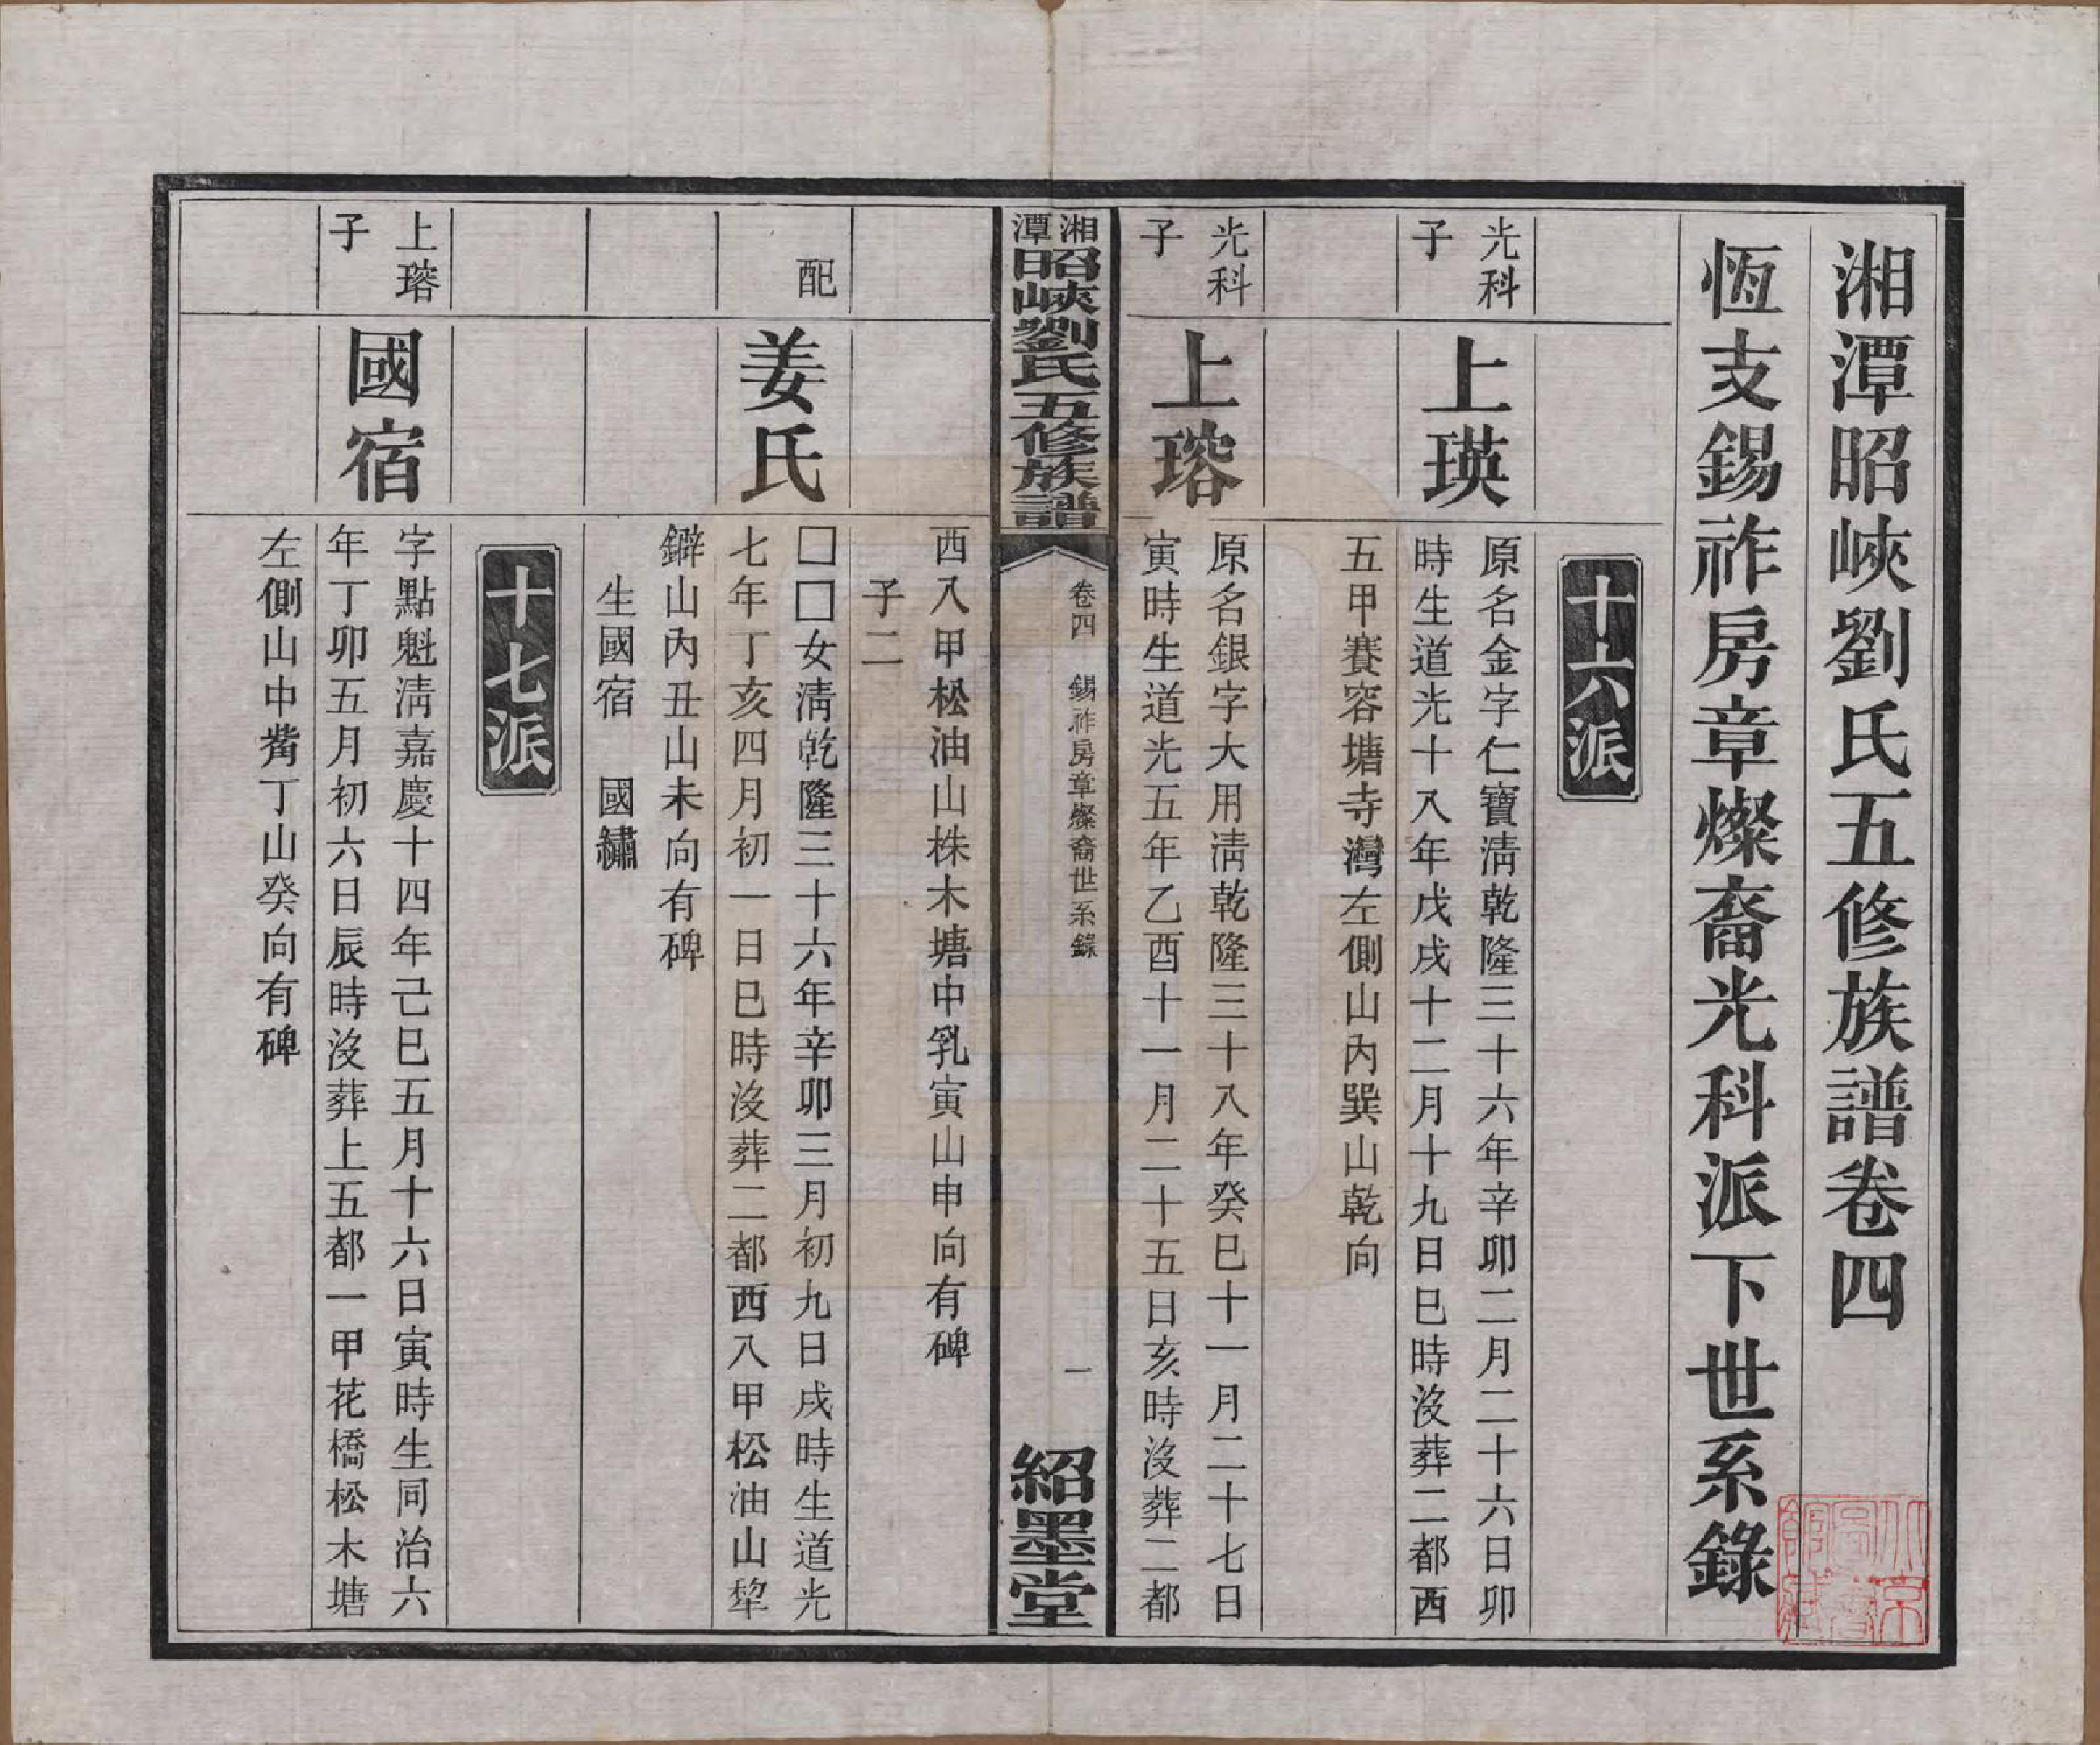 湘潭昭峽劉氏五修族譜卷四
恆支錫祚房章燦裔光科派下世系錄
十六派
光科
子
上瑛
原名金字仁寶淸乾隆三十六年辛卯二月二十六日卯
時生道光十八年戊戌十二月十九日巳時沒葬二都西
五甲賽容塘寺灣左側山內巽山乾向
光科
子
上瑢
原名銀字大用淸乾隆三十八年癸巳十一月二十七日
寅時生道光五年乙酉十一月二十五日亥時沒葬二都
湘潭昭峽劉氏五修族譜
卷四 錫祚房章燦裔世系錄
一
紹墨堂
西八甲松油山株木塘中乳寅山申向有碑
子二
配
姜氏
□□女淸乾隆三十六年辛卯三月初九日戌時生道光
七年丁亥四月初一日巳時沒葬二都西八甲松油山犂
鐴山內丑山未向有碑
生國宿 國繡
十七派
上瑢
子
國宿
字點魁淸嘉慶十四年己巳五月十六日寅時生同治六
年丁卯五月初六日辰時沒葬上五都一甲花橋松木塘
左側山中觜丁山癸向有碑